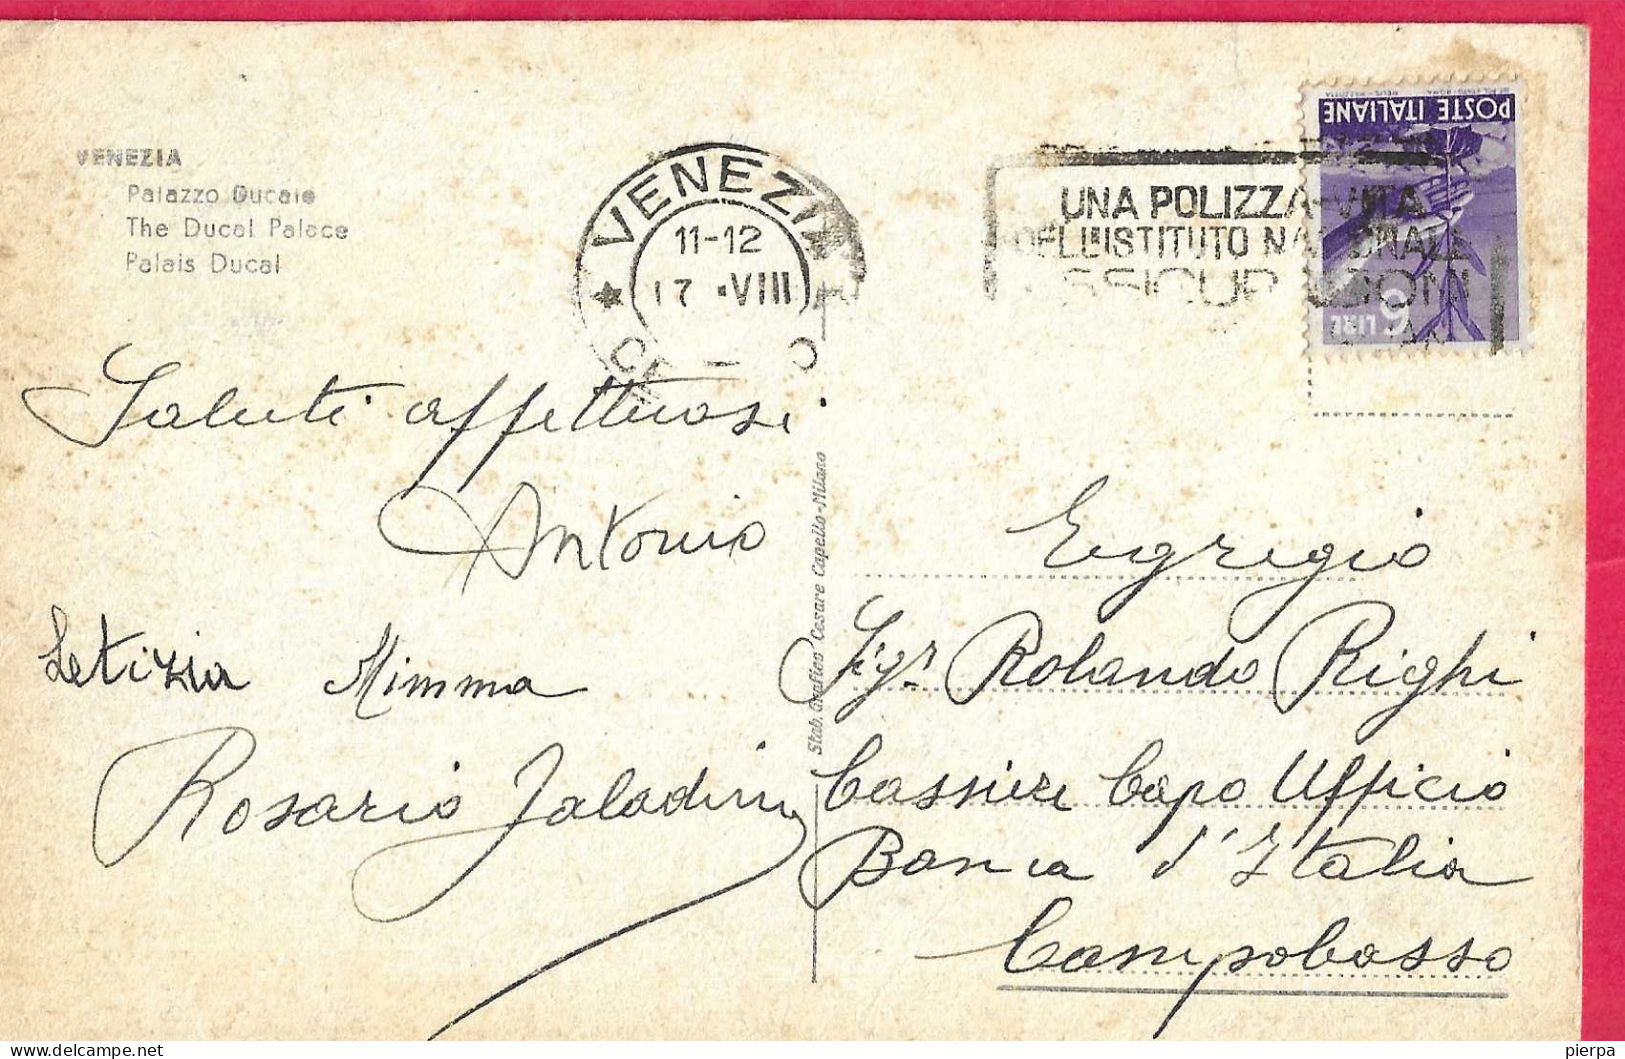 VENEZIA
Palazzo Ducale
The Ducal Palace
Palais Ducal
VENEZIA
11-12
17 VIII
UNA POLIZZA-VITA
DELL'ISTITUTO NAZIONALE
ASSICURAZIONI
POSTE ITALIANE
6 LIRE
Saluti affettuosi
Antonio
Letizia Mimma
Rosario
Stab. Grafico Cesare Capello-Milano
Egregio
Sigr Rolando Righi
Cassiere Capo Ufficio
Banca d'Italia
Campobasso
pierpa